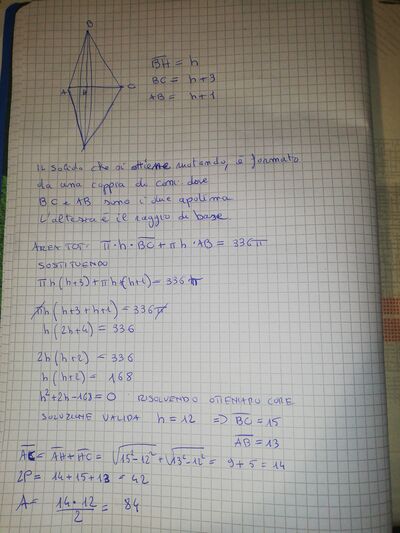 B
A
H
C
BH = h
BC = h+3
AB = h+1
IL SOLIDO CHE SI OTTIENE RUOTANDO, È FORMATO
DA UNA COPPIA DI CONI DOVE
BC E AB SONO I DUE APOTEMA
L'ALTEZZA È IL RAGGIO DI BASE
AREA TOT: π·h·BC + πh·AB = 336π
SOSTITUENDO
πh(h+3)+πh·(h+1) = 336π
πh(h+3+h+1) = 336π
h(2h+4) = 336
2h(h+2) = 336
h(h+2) = 168
h²+2h-168=0 RISOLVENDO OTTENIAMO COME
SOLUZIONE VALIDA h=12 => BC=15
AB=13
AC = AH+HC = √15²-12² + √13²-12² = 9+5=14
2P = 14+15+13 = 42
A = 14·12/2 = 84